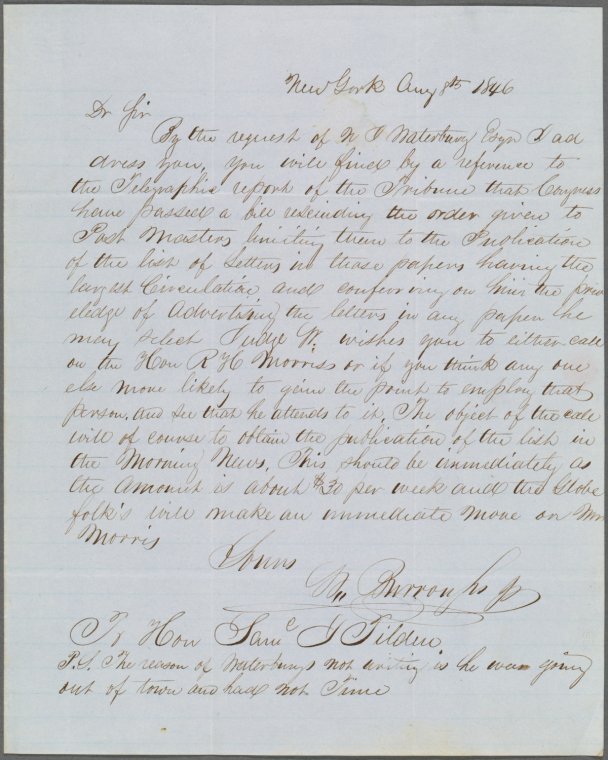 New York Aug 8th 1846
Dr Sir
By the request of N J Waterbury Esqr I ad
dress you, you will find by a reference to
the Telegraphic report of the Tribune that Congress
have passed a bill rescinding the order given to
Post Masters limiting them to the Publication
of the list of Letters in those papers having the
largest Circulation and conferring on him the priv
eledge of Advertising the letters in any paper he
may select Judge W. wishes you to either call
on the Hon R H Morris or if you think any one
else more likely to gain the point to employ that
person, and see that he attends to it. The object of the call
will of course to obtain the publication of the list in
the Morning News. This should be immediately as
the amount is about $30 per week and the Globe
folk's will make an immediate move on Mr
Morris
Yours
Wm Burroughs jr
To Hon Saml J Tilden
P.S. The reason of Waterburys not writing is he was going
out of town and had not Time